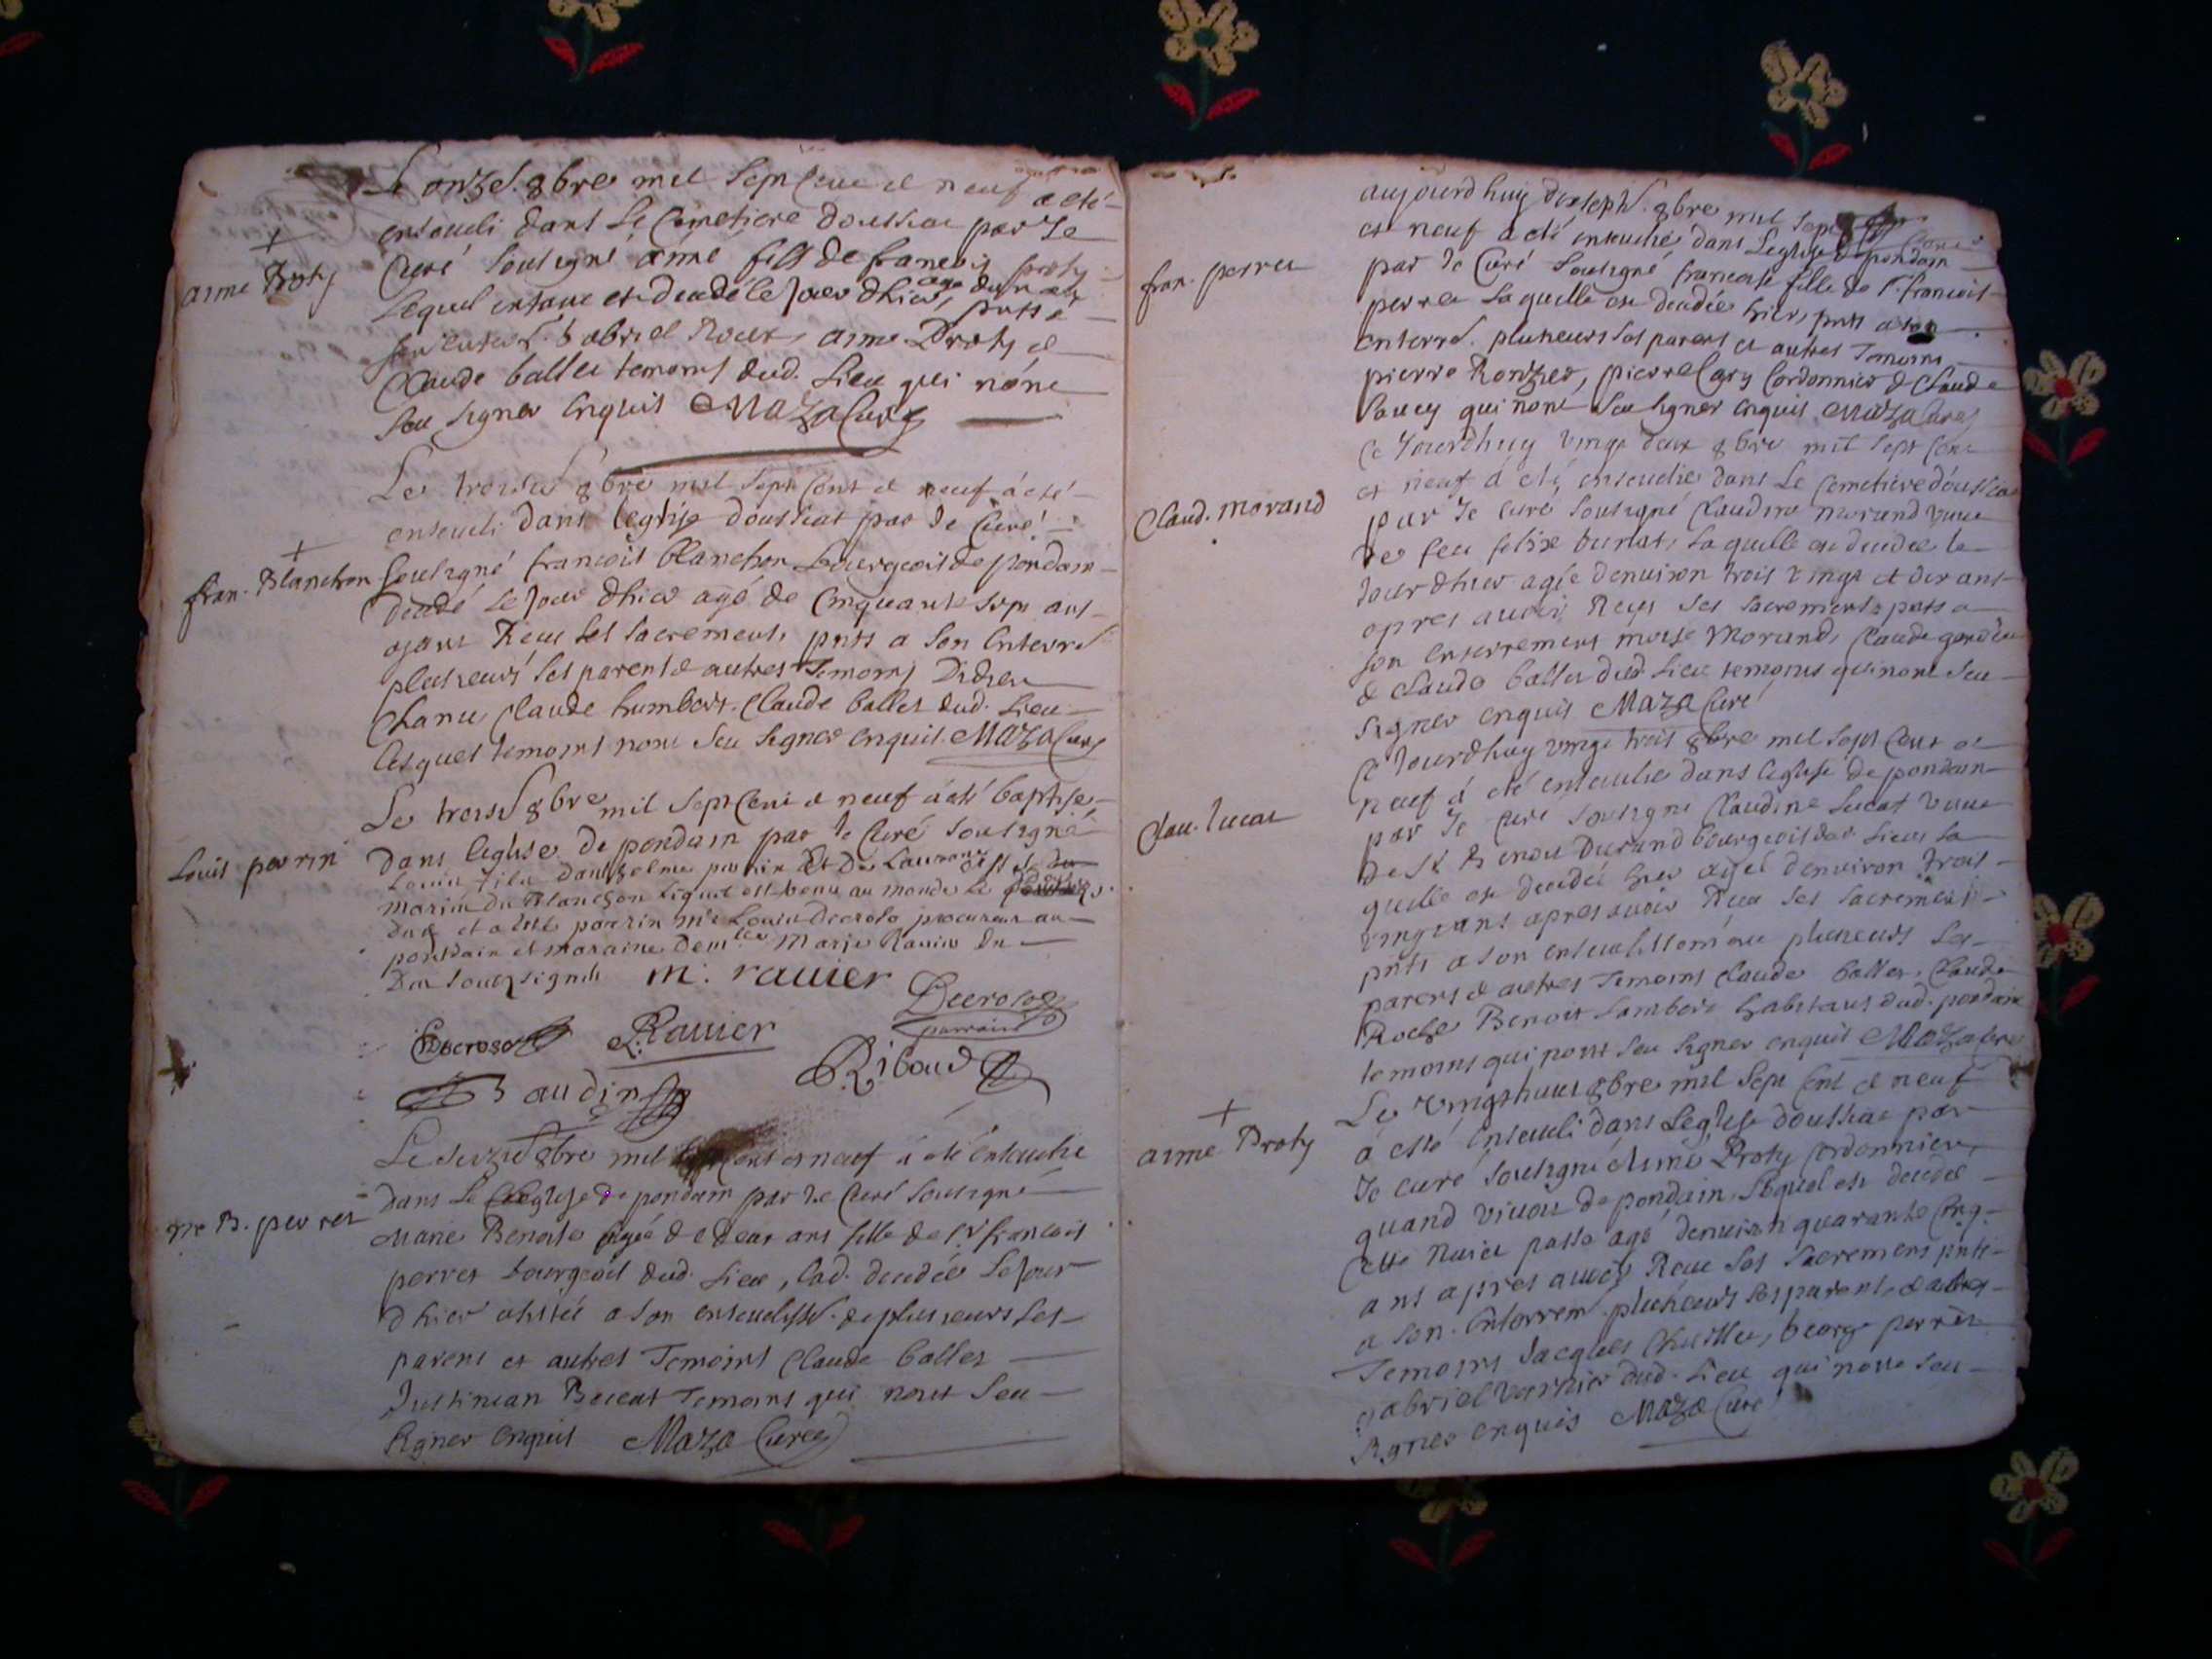 Le onze 8bre mil sept cent et neuf a esté
ensevely dans le cimetiere doussiat par Je
aimé Proty
Curé soussigné aimé fils de francois proty
lequel enfant est decedé le jour dhier,
Gabriel Roux, aimé Proty et
Claude ballet temoins dud. lieu qui nont
sceu signer enquis Maza Curé
Le 8bre mil sept cent et neuf a esté
enseveli dans leglise doussiat par Je Curé
fran. Blanchon
soussigné francois blanchon bourgeois de pondain
decedé le jour dhier agé de cinquante sept ans
ayant Receu ses sacrements pnts a son enterrt
plusieurs ses parents et autres Temoins Didier
Chanu, Claude humbert. Claude ballet dud. lieu
lesquels temoins nont sceu signer enquis. Maza Curé
Le 8bre mil sept cent et neuf a esté baptisé
dans leglise de pondain par Je Curé soussigné
Louis perrin
Louis fils danthelme perrin
marin du Blanchon liquel est venu au monde le
dud et a esté parrin Mre Louis Decroso procureur au
pontdain et maraine Demlle Marie Ravier du
Dit soussignés m. ravier
Decroso
parrain
Decroso Ravier
Ribaud
Baudin
Le seize 8bre mil cent et neuf a été ensevelie
dans leglise de pondain par Je Curé soussigné
Me B. perret
Marie Benoite agée de deux ans fille de Sr francois
perret bourgeois dud. lieu, lad. decedée le jour
dhier assisté a son ensevelisst. de plusieurs ses
parens et autres Temoins Claude ballet
Justinian Temoins qui nont sceu
signer enquis Maza Curé
aujourdhuy dixsept 8bre mil sept cent
et neuf a esté ensevelie dans Leglise de pondain
fran. perret
par Je Curé soussigné francoise fille de Sr francois
perret laquelle est decedée hier, pnts a son
enterrt. plusieurs ses parens et autres Temoins
pierre Ronzier, pierre Cary Cordonnier & Claude
qui nont sceu signer enquis Maza Curé
Ce Jourdhuy vingt deux 8bre mil sept cent
et neuf a esté ensevelie dans Le Cemetiere doussiat
Claud. morand
par Je curé soussigné Claudine morand veuve
de feu felix laquelle est decedée le
jour dhier agée denviron trois vingt et dix ans
apres avoir Receu ses sacrements pnts a
son enterrement Morand, Claude
& Claude ballet dud. lieu temoins qui nont sceu
signer enquis Maza Curé
Ce Jourdhuy vingt trois 8bre mil sept cent et
neuf a esté ensevelie dans leglise de pondain
Clau. lucat
par Je Curé soussigné Claudine Lucat veuve
de Sr Durand bourgeois dud. lieu la
quelle est decedée hier agée denviron trois
vingt ans apres avoir Receu ses sacrements
pnts a son ensevelissement plusieurs ses
parens & autres Temoins Claude ballet, Claude
Roche Benoit Lambert habitants dud. pondain
temoins qui nont sceu signer enquis Maza Curé
Le Vingthuit 8bre mil sept cent et neuf
a esté Enseveli dans Leglise doussiat par
aimé Proty
Je curé soussigné Aimé Proty Cordonnier,
quand vivoit de pondain, lequel est decedé
Cette Nuict passé agé denviron quarante Cinq
ans apres avoir Receu ses sacremens pnts
a son Enterrem. plusieurs ses parents & autres
Temoins Jacques George perret
gabriel varnier dud. lieu qui nont sceu
signer enquis Maza Curé